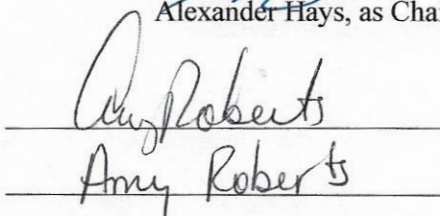 Alexander Hays, as Cha
Amy Roberts
Amy Roberts